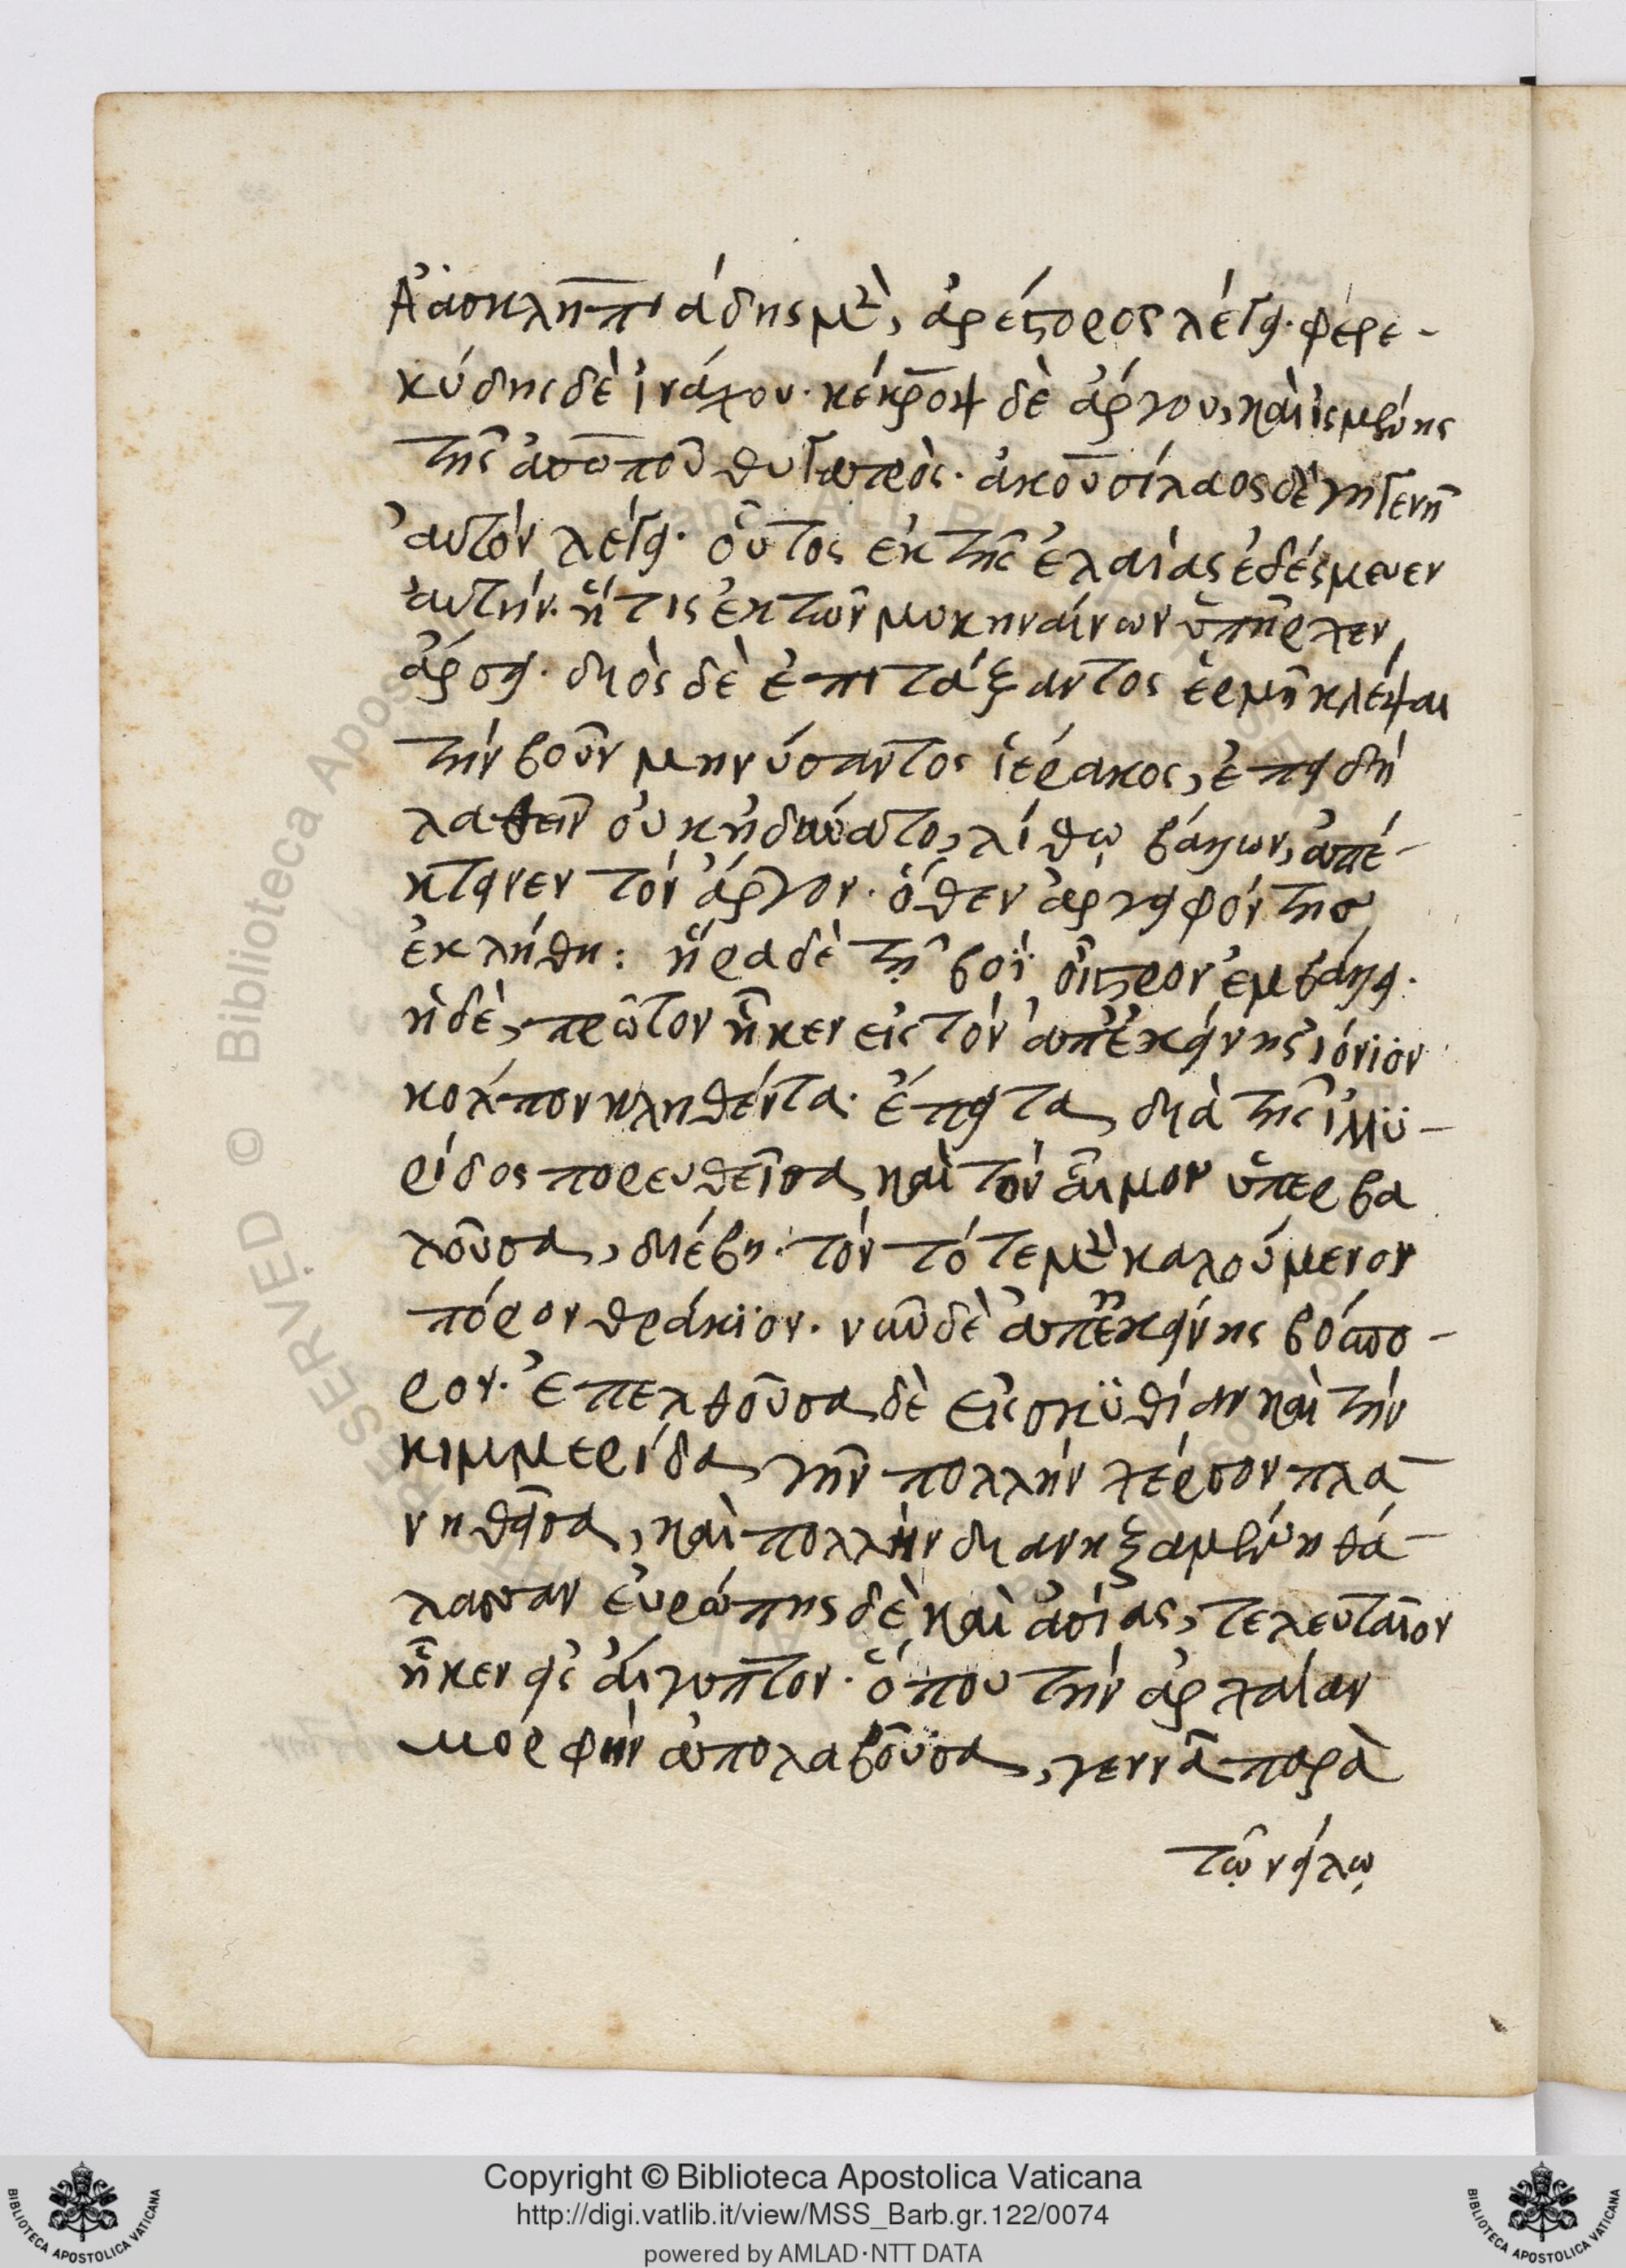 Ἀἀσκληπιάδης μὲν, ἀρέστορος λέγει· φερε-
κύδης δὲ ἰνάχου· κέκροψ δὲ ἄργου, καὶ ἰσμήνης
τῆς ἀσωποῦ θυγατρὸς· ἀκουσίλαος δὲ γηγενῆ
αὐτόν λέγει· οὗτος ἐκ τῆς ἐλαίας ἐδέσμευεν
αὐτήν· ἥτις ἐκ τῶν μυκηναίνων ὑπῆρχεν
ἄρσει· διὸς δὲ ἐπιτάξαντος ἑρμῆ κλέψαι
τὴν βοῦν μηνύσαντος ἱέρακος, ἐπειδὴ
λαθεῖν οὐκ ἠδύνατο, λίθῳ βάλων, ἀπέ-
κτεινεν τόν ἄργον· ὅθεν ἀργειφόντης
ἐκλήθη: ἥρα δὲ τῇ βοῒ οἶστρον ἐμβάλλει·
ἡ δὲ, πρῶτον ἧκεν εἰς τόν ἀπ' ἐκείνης ἰόνϊον
κόλπον κληθέντα· ἔπειτα διὰ τῆς ἰλλϋ-
ρίδος πορευθεῖσα, καὶ τόν αἷμον ὑπερβα
λοῦσα, διέβη· τόν τότε μὲν καλούμενον
πόρον θράκϊον· νῦν δὲ ἀπ' ἐκείνης βόσπο-
ρον· ἐπελθοῦσα δὲ εἰς σκϋθίαν καὶ τὴν
κιμμερίδα γῆν πολλήν χέρσον πλα-
νηθεῖσα, καὶ πολλὴν διανηξαμένη θά-
λασσαν εὐρώπης δὲ καὶ ἀσίας, τελευταῖον
ἧκεν εἰς αἴγυπτον· ὅπου τὴν ἀρχαίαν
μορφὴν ἀπολαβοῦσα, γεννᾶ παρὰ
τῷ νείλῳ
Copyright © Biblioteca Apostolica Vaticana
http://digi.vatlib.it/view/MSS_Barb.gr.122/0074
powered by AMLAD·NTT DATA